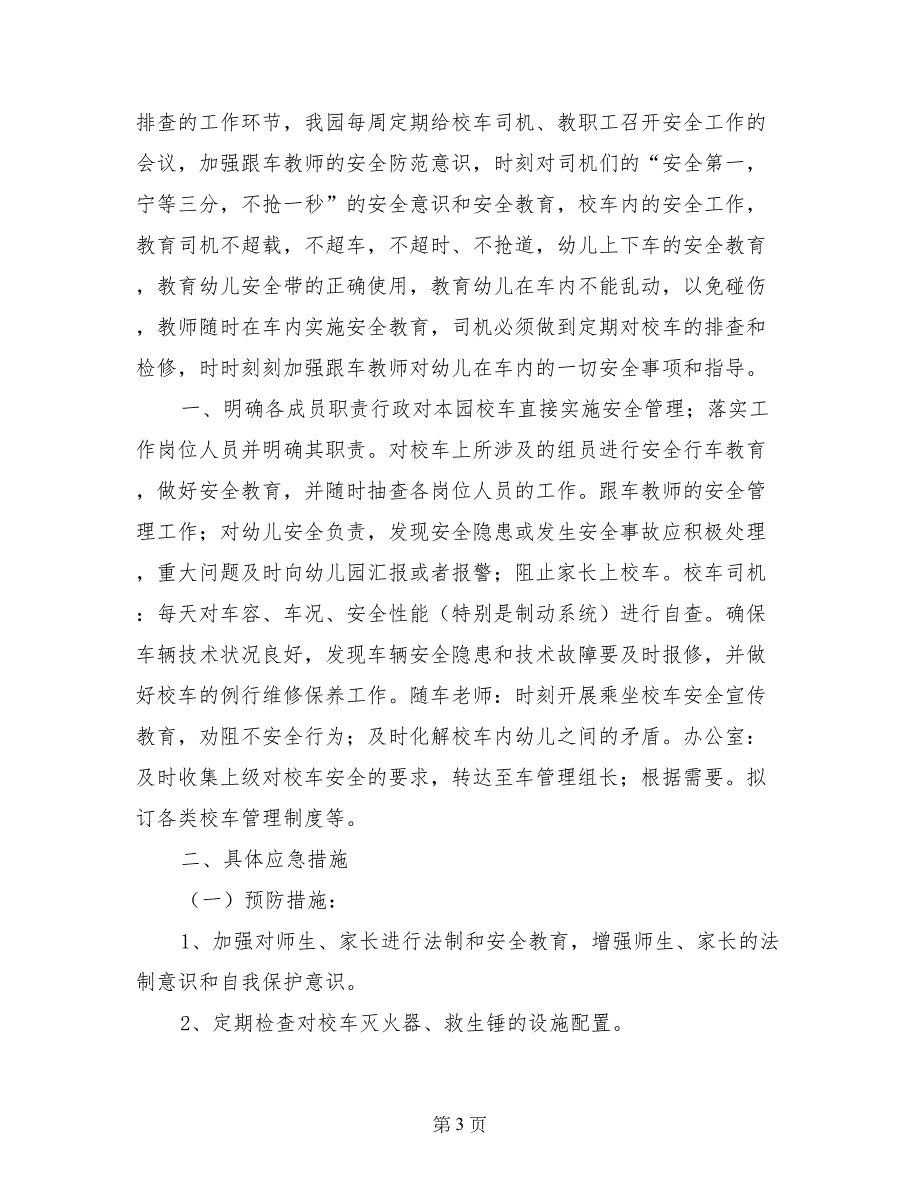 排查的工作环节，我园每周定期给校车司机、教职工召开安全工作的
会议，加强跟车教师的安全防范意识，时刻对司机们的“安全第一，
宁等三分，不抢一秒”的安全意识和安全教育，校车内的安全工作，
教育司机不超载，不超车，不超时、不抢道，幼儿上下车的安全教育
，教育幼儿安全带的正确使用，教育幼儿在车内不能乱动，以免碰伤
，教师随时在车内实施安全教育，司机必须做到定期对校车的排查和
检修，时时刻刻加强跟车教师对幼儿在车内的一切安全事项和指导。
一、明确各成员职责行政对本园校车直接实施安全管理；落实工
作岗位人员并明确其职责。对校车上所涉及的组员进行安全行车教育
，做好安全教育，并随时抽查各岗位人员的工作。跟车教师的安全管
理工作；对幼儿安全负责，发现安全隐患或发生安全事故应积极处理
，重大问题及时向幼儿园汇报或者报警；阻止家长上校车。校车司机
：每天对车容、车况、安全性能（特别是制动系统）进行自查。确保
车辆技术状况良好，发现车辆安全隐患和技术故障要及时报修，并做
好校车的例行维修保养工作。随车老师：时刻开展乘坐校车安全宣传
教育，劝阻不安全行为；及时化解校车内幼儿之间的矛盾。办公室：
及时收集上级对校车安全的要求，转达至车管理组长；根据需要。拟
订各类校车管理制度等。
二、具体应急措施
（一）预防措施：
1、加强对师生、家长进行法制和安全教育，增强师生、家长的法
制意识和自我保护意识。
2、定期检查对校车灭火器、救生锤的设施配置。
第 3 页